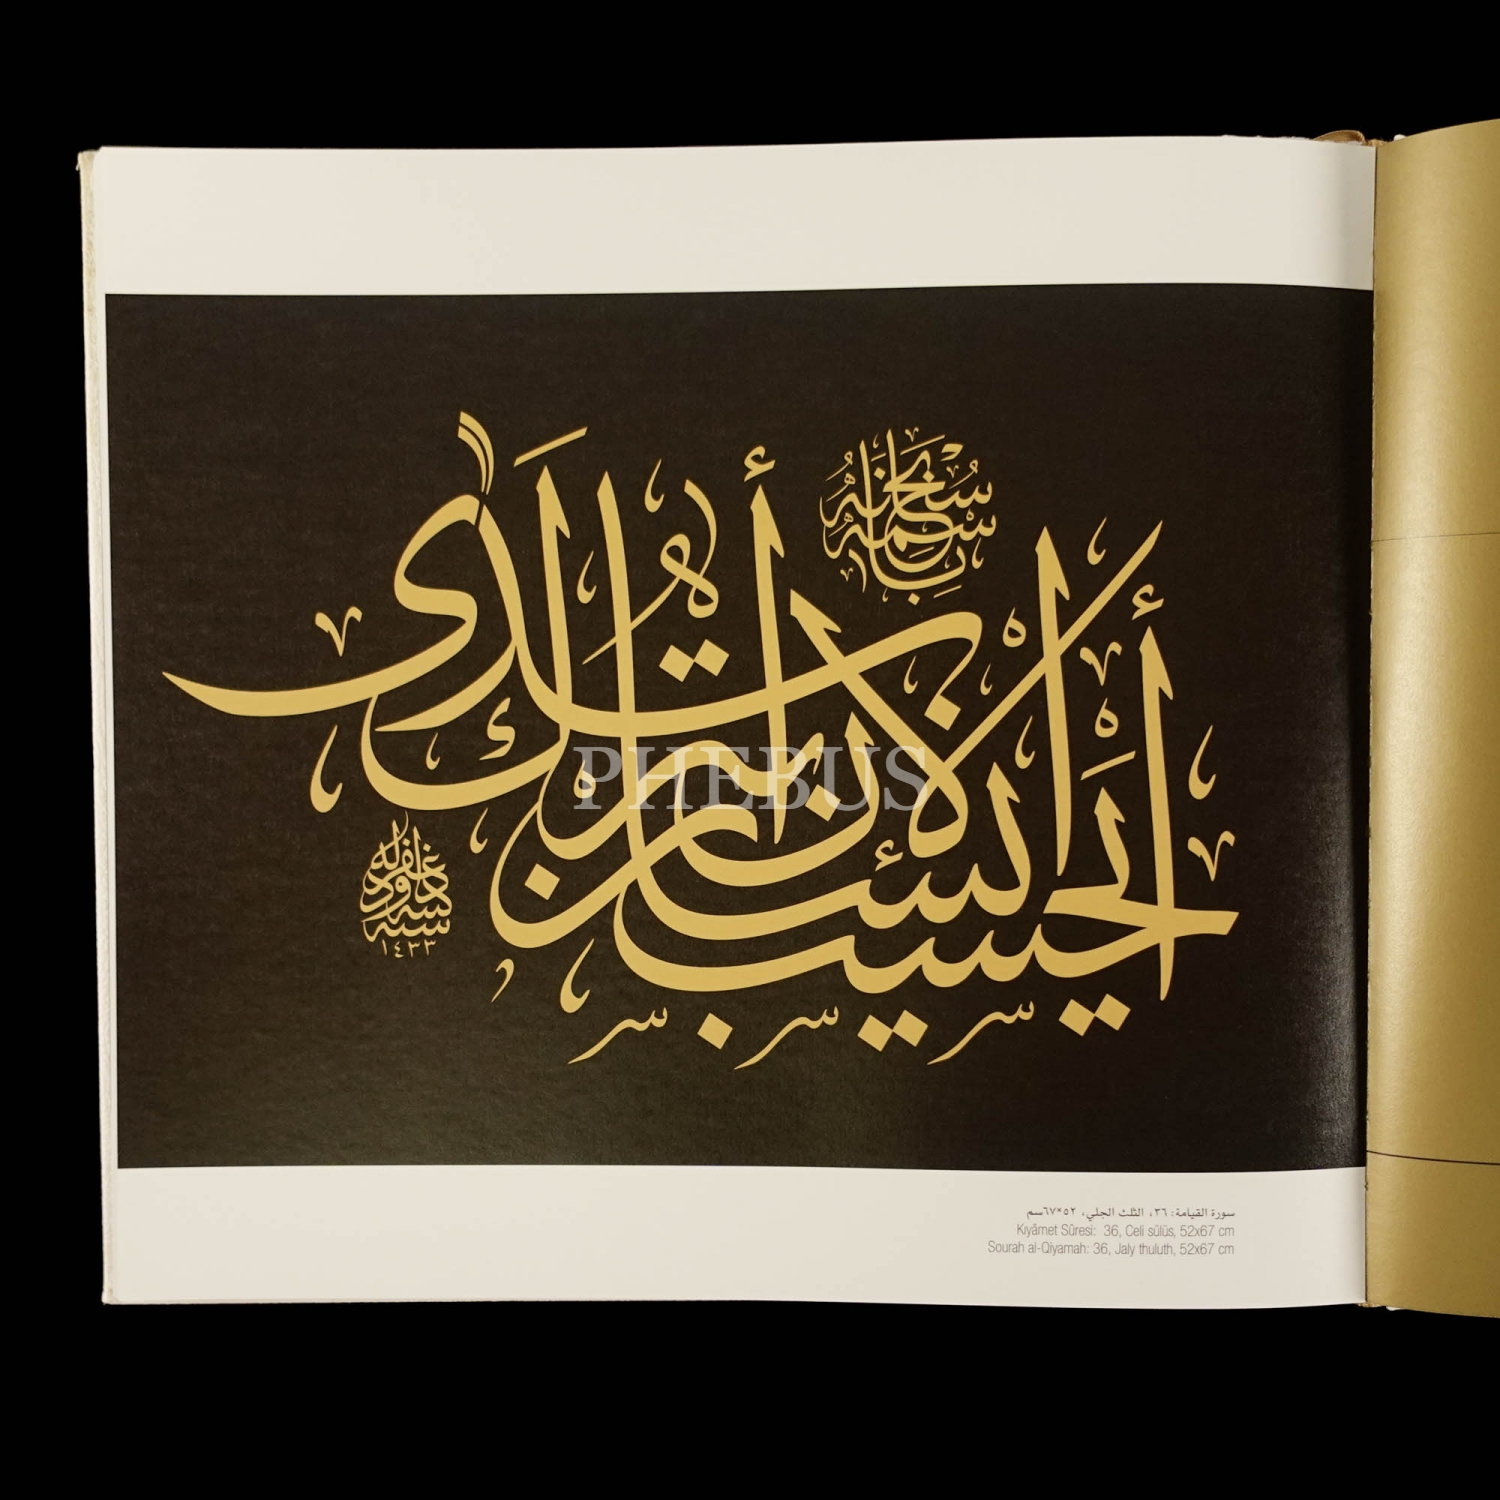 باسمه سبحانه
أيحسب الإنسان أن يترك سدى
١٤٣٣
PHEBUS
سورة القيامة: ٣٦، الثلث الجلي، ٥٢*٦٧سم
Kıyâmet Sûresi: 36, Celi sülüs, 52x67 cm
Sourah al-Qiyamah: 36, Jaly thuluth, 52x67 cm